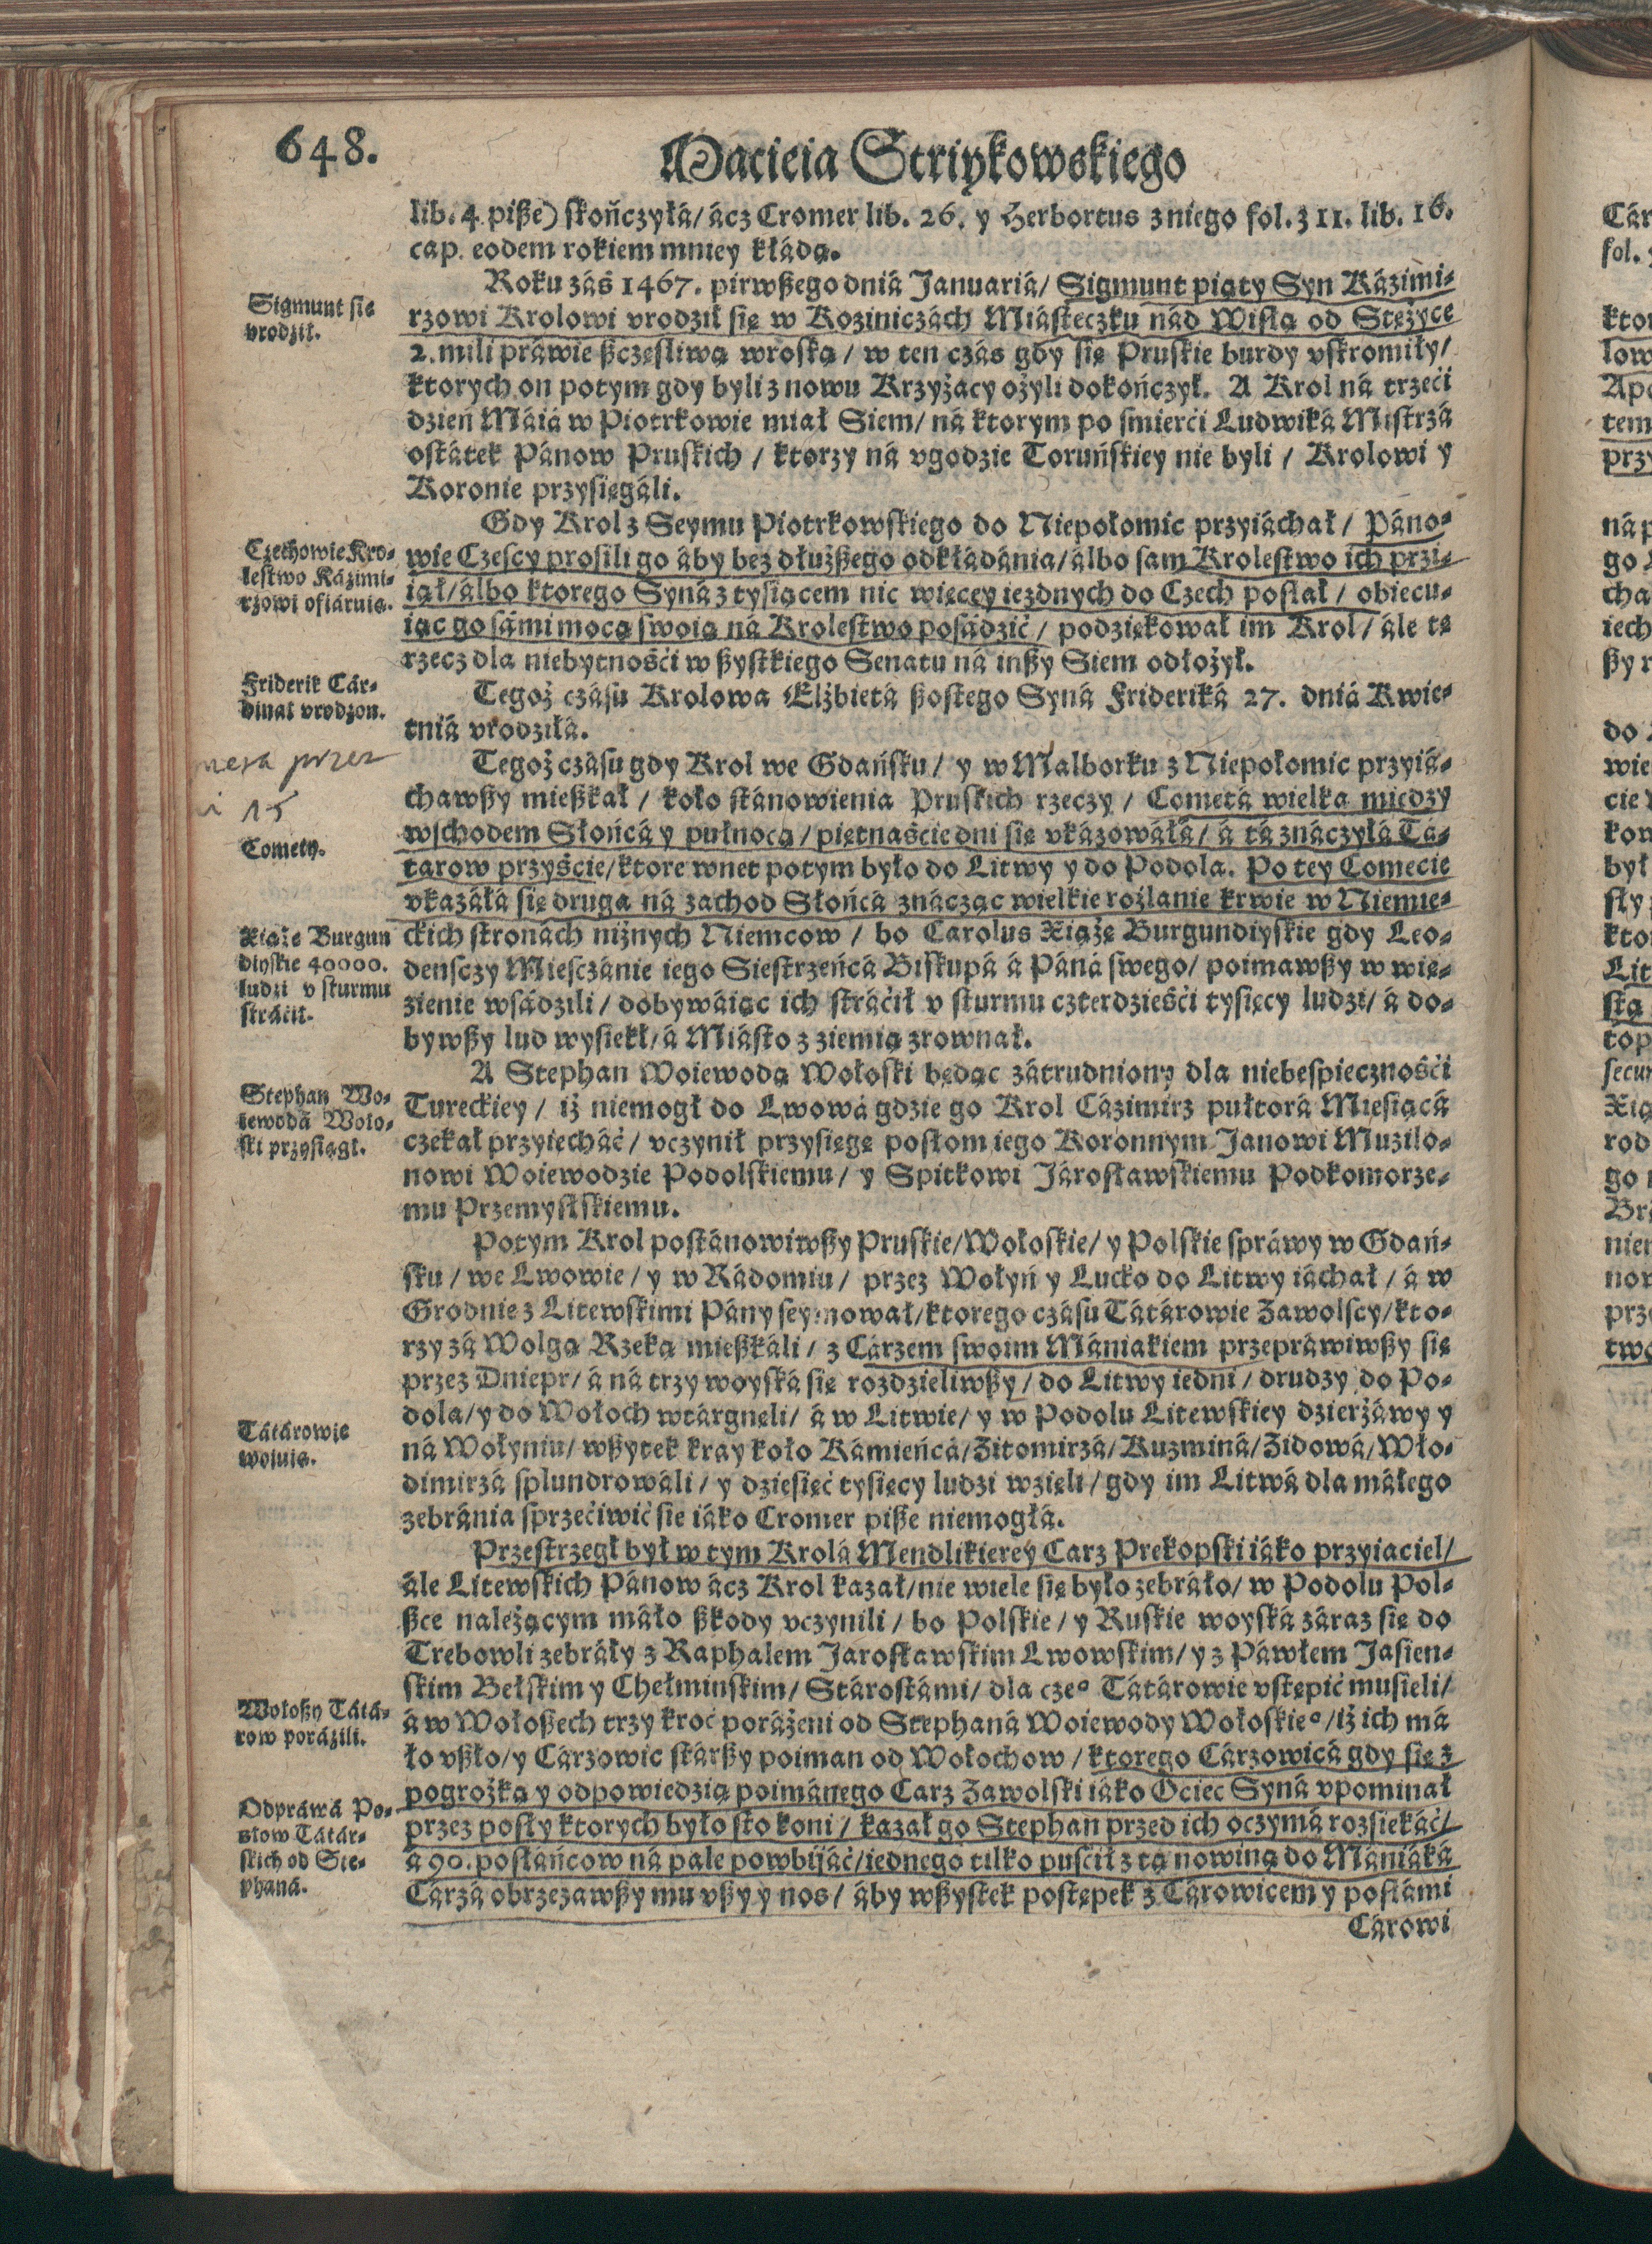 648.
Macieia Striykowskiego
lib. 4 pisze) skończyłá/ ácz Cromer lib. 26. y Herbortus z niego fol. 311. lib. 16.
cap. eodem rokiem mniey kłádą.
Roku záś 1467. pirwszego dniá Januariá/ Sigmunt piąty Syn Kázimi-
rzowi Krolowi vrodził się w Koziniczách Miásteczku nád Wisłą od Stężyce
2. mili práwie szczęśliwą wroską/ w ten czás gdy się Pruskie burdy vskromiły/
ktorych on potym gdy byli z nowu Krzyżacy ożyli dokończył. A Krol ná trzeći
dzień Máiá w Piotrkowie miał Siem/ ná ktorym po śmierći Ludwiká Mistrzá
ostátek Pánow Pruskich/ ktorzy ná vgodzie Toruńskiey nie byli/ Krolowi y
Koronie przysięgáli.
Gdy Krol z Seymu Piotrkowskiego do Niepołomic przyiáchał/ Páno-
wie Czescy prosili go áby bez dłuższego odkłádánia/ álbo sam Krolestwo ich przi-
iął/ álbo ktorego Syná z tysiącem nic więcey iezdnych do Czech posłał/ obiecu-
iąc go sámi mocą swoią ná Krolestwo posádzić/ podziękował im Krol/ ále tę
rzecz dla niebytnośći wszystkiego Senatu ná inszy Siem odłożył.
Tegoż czásu Krolowa Elżbietá szostego Syná Friderika 27. dniá Kwie-
tniá vrodziłá.
Tegoż czásu gdy Krol we Gdańsku/ y w Malborku z Niepołomic przyiá-
chawszy mieszkał/ koło stánowienia Pruskich rzeczy/ Cometá wielka między
wschodem Słońcá y pułnocą/ piętnaście dni się vkázowáłá/ á tá znáczyłá Tá-
tarow przyście/ ktore wnet potym było do Litwy y do Podola. Po tey Comecie
vkazáłá się druga ná zachod Słońcá znácząc wielkie rozlanie krwie w Niemie-
ckich stronách niżnych Niemcow/ bo Carolus Xiążę Burgundiyskie gdy Leo-
denscży Miesczánie iego Siestrzeńcá Biskupá á Páná swego/ poimawszy w wię-
zienie wsádzili/ dobywáiąc ich stráćił v szturmu czterdzieśći tysięcy ludzi/ á do-
bywszy lud wysiekł/ á Miásto z ziemią zrownał.
A Stephan Woiewodą Wołoski będąc zátrudniony dla niebespiecznośći
Tureckiey/ iż niemogł do Lwowá gdzie go Krol Cázimirz pułtorá Miesiącá
czekał przyiecháć/ vczynił przysięgę posłom iego Koronnym Janowi Muzilo-
nowi Woiewodzie Podolskiemu/ y Spitkowi Járosławskiemu Podkomorze-
mu Przemyslskiemu.
Potym Krol postánowiwszy Pruskie/ Wołoskie/ y Polskie spráwy w Gdań-
sku/ we Lwowie/ y w Rádomiu/ przez Wołyń y Lucko do Litwy iáchał/ á w
Grodnie z Litewskimi Pány seymował/ ktorego czásu Tátárowie Zawolscy/ kto-
rzy zá Wolgą Rzeką mieszkáli/ z Cárzem swoim Mániakiem przepráwiwszy się
przez Dniepr/ á ná trzy woyská się rozdzieliwszy/ do Litwy iedni/ drudzy do Po-
dola/ y do Wołoch wtárgnęli/ á w Litwie/ y w Podolu Litewskiey dzierżáwy y
ná Wołyniu/ wszytek kray koło Kámieńcá/ Zitomirzá/ Kuzminá/ Zidowá/ Wło-
dimirzá splundrowáli/ y dziesięć tysięcy ludzi wzięli/ gdy im Litwá dla máłego
zebránia sprzećiwić sie iáko Cromer pisze niemogłá.
Przestrzegł był w tym Krolá Mendlikierey Carz Prekopski iáko przyiaciel/
ále Litewskich Pánow ácz Krol kazał/ nie wiele się było zebráło/ w Podolu Pol-
szce należącym máło szkody vczynili/ bo Polskie/ y Ruskie woyská záraz się do
Trebowli zebráły z Raphalem Jarosławskim Lwowskim/ y z Páwłem Jasien-
skim Bełskim y Chełminskim/ Stárostámi/ dla czeº Tátárowie vstępić musieli/
á w Wołoszech trzy kroć poráżeni od Stepháná Woiewody Wołoskieº/ iż ich má
ło vszło/ y Cárzowic stárszy poiman od Wołochow/ ktorego Cárzowicá gdy się z
pogrożką y odpowiedzią poimánego Carz Zawolski iáko Ociec Syná vpominał
przez posły ktorych było sto koni/ kazał go Stephan przed ich oczymá rozsiekáć/
á 90. posłáńcow ná pale powbijáć/ iednego tilko puśćił z tą nowiną do Mániáká
Cárzá obrzezawszy mu vszy y nos/ áby wszystek postępek z Cárowicem y posłámi
Cárowi
Sigmunt się
vrodził.
Czechowie Kro-
lestwo Kázimi-
rzowi ofiáruią.
Friderik Cár-
dinał vrodzon.
przez
i 15
Comety.
Xiążę Burgun
diyskie 40000.
ludzi v szturmu
stráćił.
Stephan Wo-
iewodá Woło-
ski przysiągł.
Tátárowie
woiuią.
Wołoszy Tátá-
row poráźili.
Odpráwá Po-
słow Tátár-
skich od Ste-
pháná.